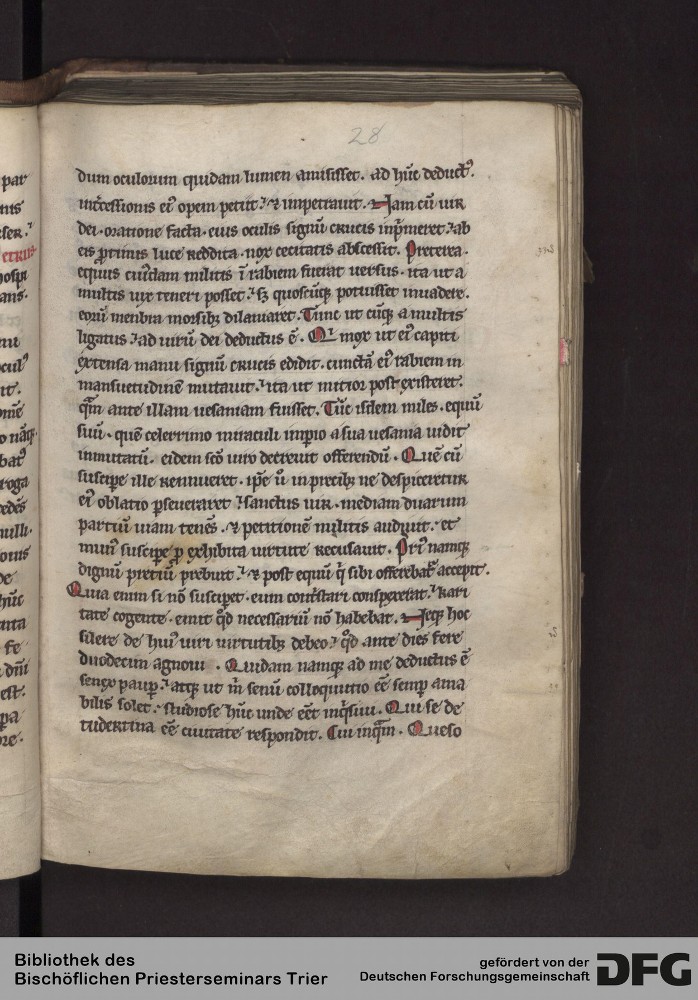 28
dum oculorum quidam lumen amisisset. ad hūc deductꝰ.
int̄cessionis eiꝰ opem petiit ⁊ impetrauit. Nam cū uir
dei. oratione facta. eius oculis signū crucis inp̄meret ab
eis protinus luce reddita. nox cecitatis abscessit. Preterea.
equus cuiꝰdam militis ī rabiem fuerat uersus. ita ut a
multis uix teneri posset. sꝫ quoscūqꝫ potuisset inuadere.
eorū menbra morsibꝫ dilaniaret. Tunc ut cūqꝫ a multis
ligatus ad uirū dei deductus ē. Qi mox ut eiꝰ capiti
extensa manu signū crucis edidit. cunctā eiꝰ rabiem in
mansuetudinē mutauit. ita ut mitior post existeret.
qͣm ante illam uesaniam fuisset. Tūc isdem miles. equū
suū. quē celerrimo miraculi imꝑio a sua uesania uidit
inmutatū. eidem scō uiro decreuit offerendū. Quē cū
suscipe ille rennueret. ipͤe ū in precibꝫ ne despiceretur
eiꝰ oblatio ꝑseueraret Sanctus uir. mediam duarum
partiū uiam tenēs. ⁊ petitionē militis audiuit. et
munꝰ suscipe ꝓ exhibita uirtute recusauit. Priꝰ namqꝫ
dignū pretiū prebuit. ⁊ post equū q̄ sibi offerebatꝰ accepit.
Quia enim si nō susciꝑet. eum contͥstari conspexerat. kari
tate cogente. emit qͦd necessariū nō habebat. Neqꝫ hoc
silere de huiꝰ uiri uirtutibꝫ debeo. qͦd ante dies fere
duodecim agnoui. Quidam namqꝫ ad me deductus ē
senex pauꝑ. atqꝫ ut m̄ senū colloquutio eē semꝑ ama
bilis solet. studiose hūc unde eēt inqͥsiui. Qui se de
tudertina eē ciuitate respondit. Cui inqͣm. Queso
Bibliothek des
Bischöflichen Priesterseminars Trier
gefördert von der
Deutschen Forschungsgemeinschaft
DFG